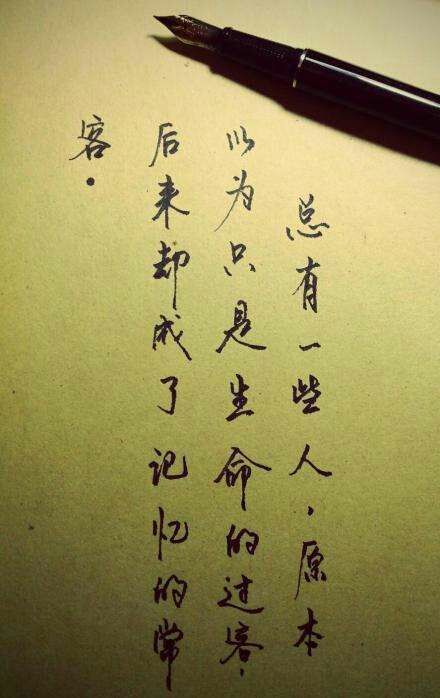 总有一些人，原本
以为只是生命的过客，
后来却成了记忆的常
客．